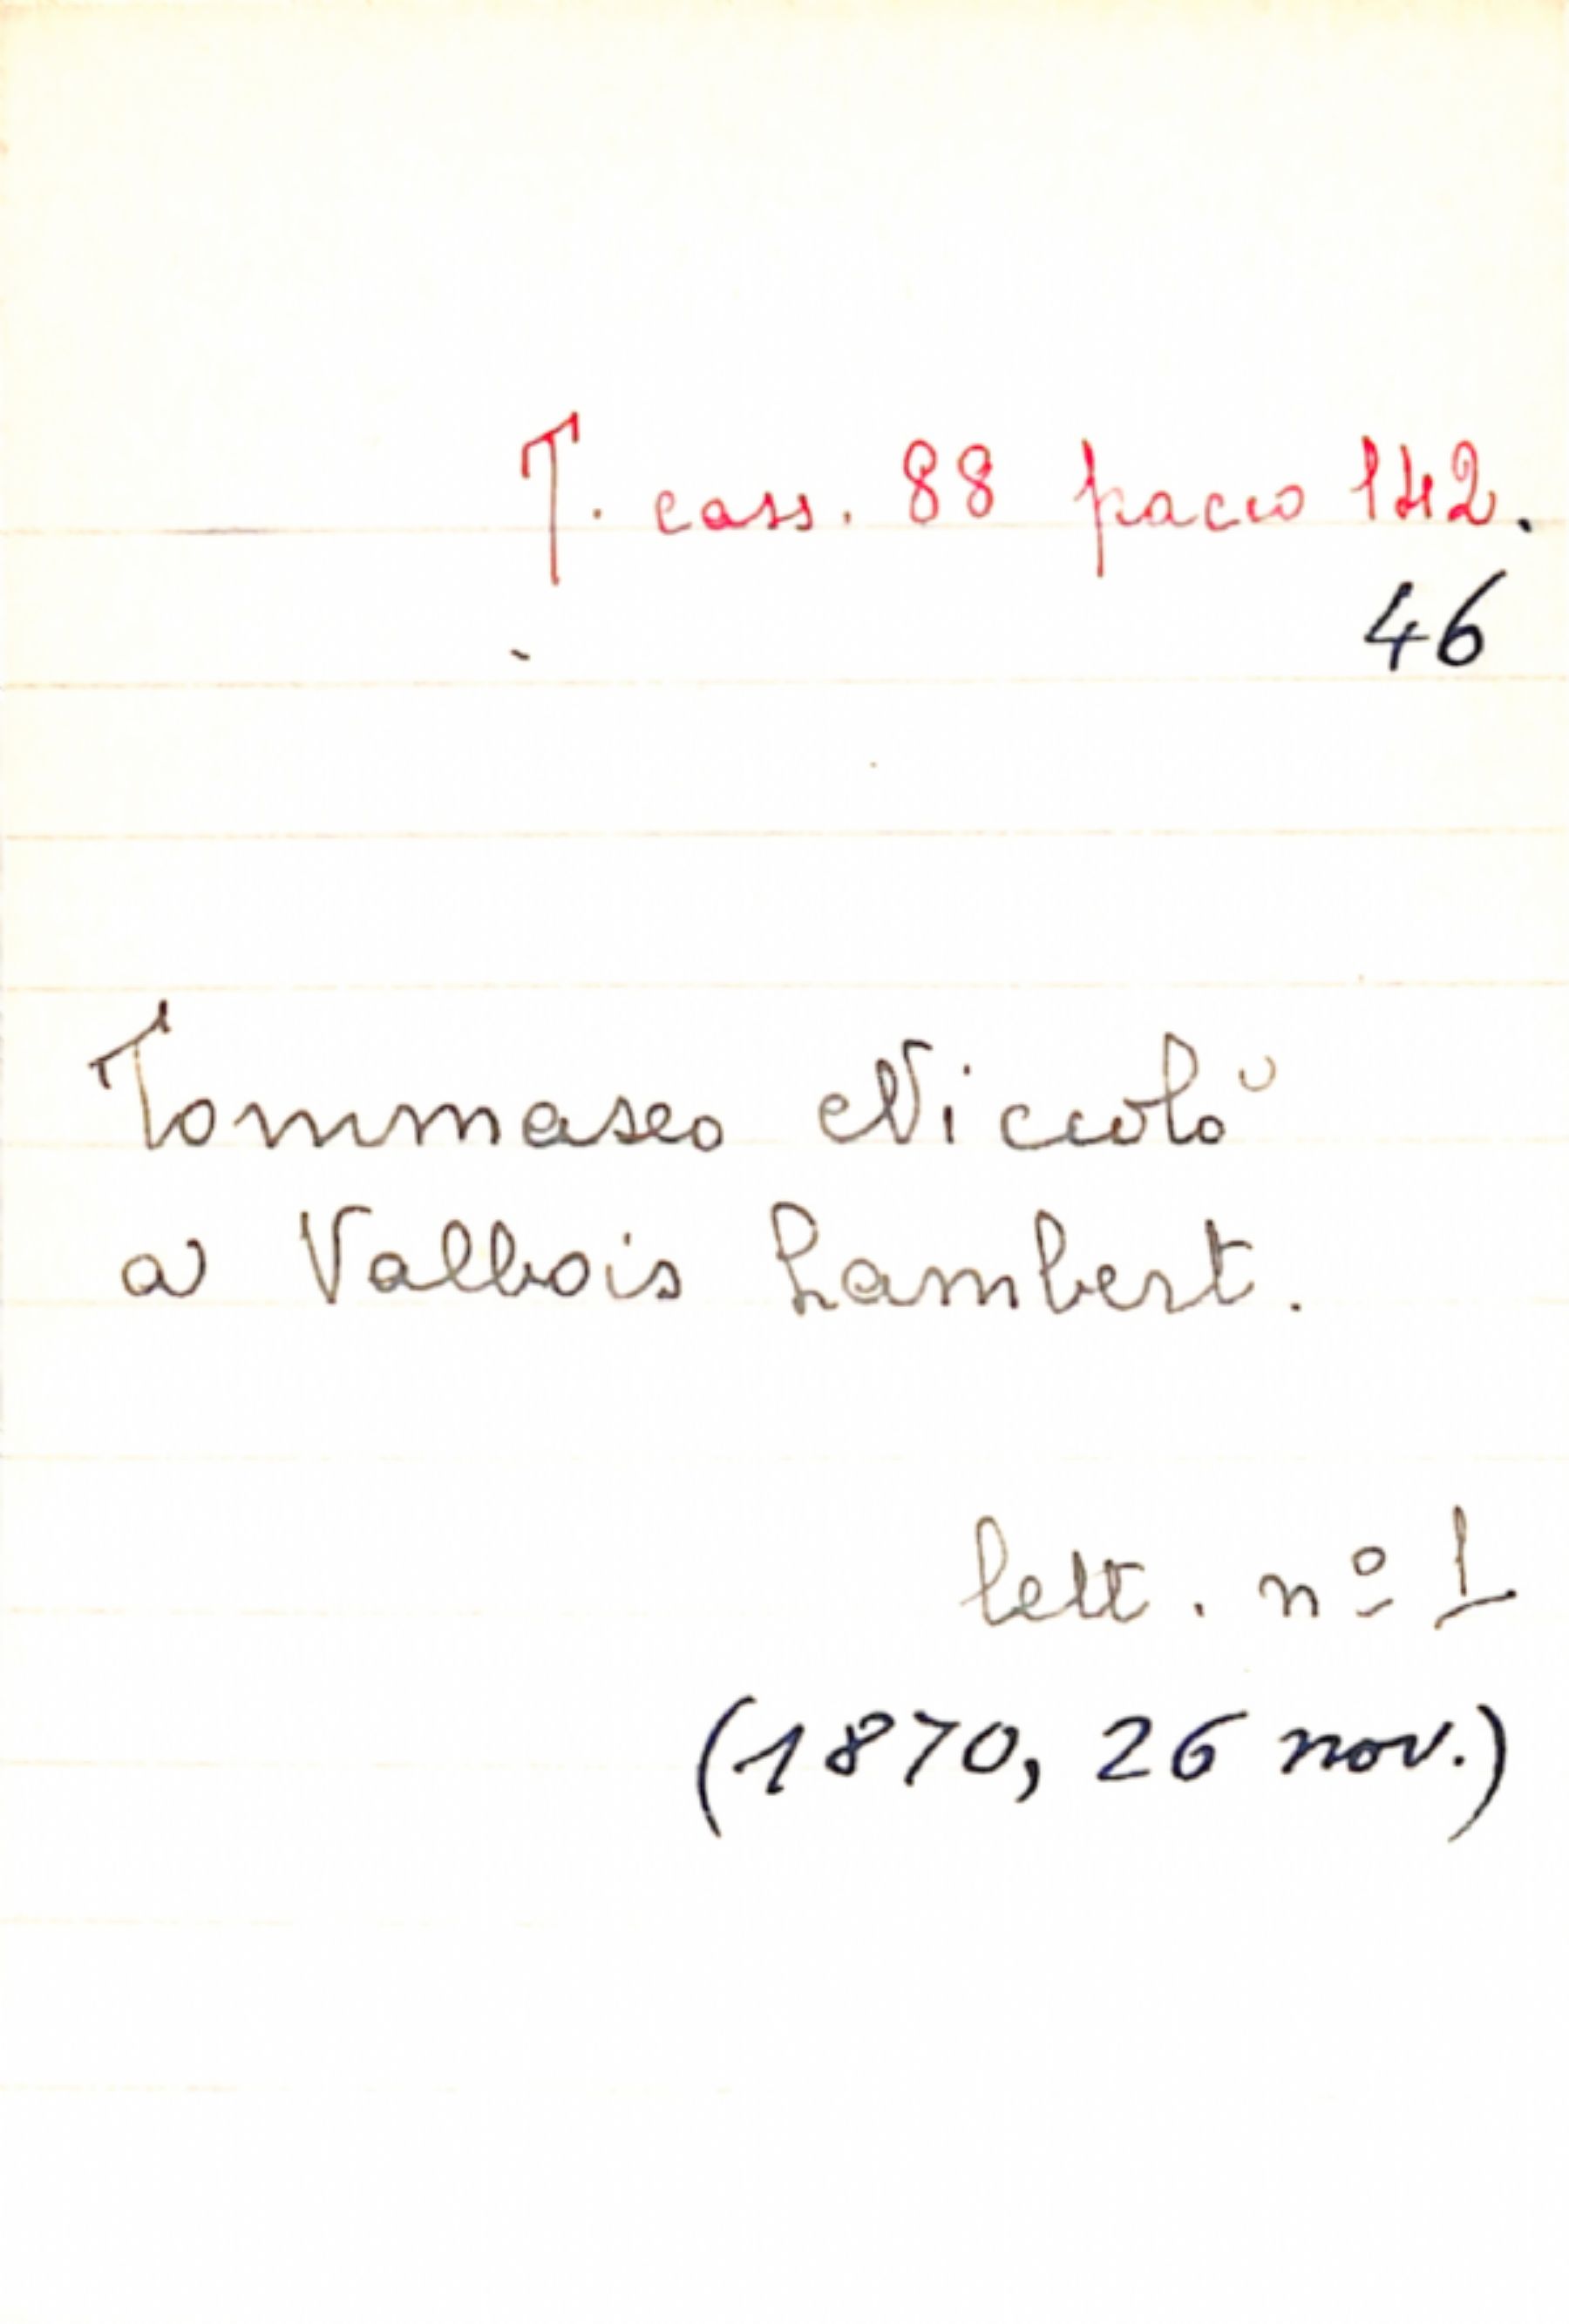 T. cass. 88 pacco 142.
46
Tommaseo Niccolò
a Valbois Lambert.
lett. nº 1
(1870, 26 nov.)